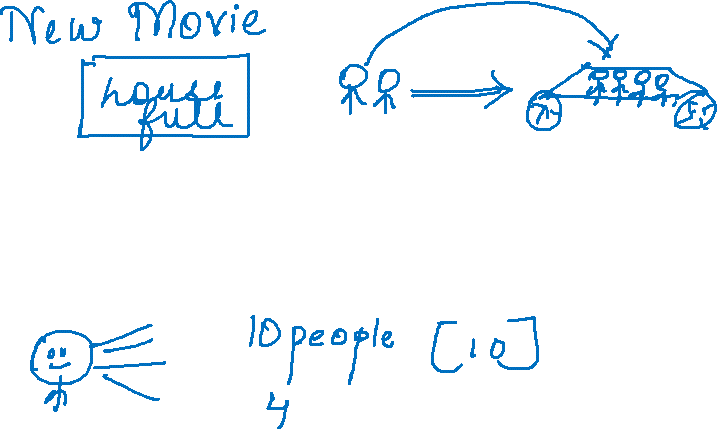 New Movie
house
full
10 people [10]
4